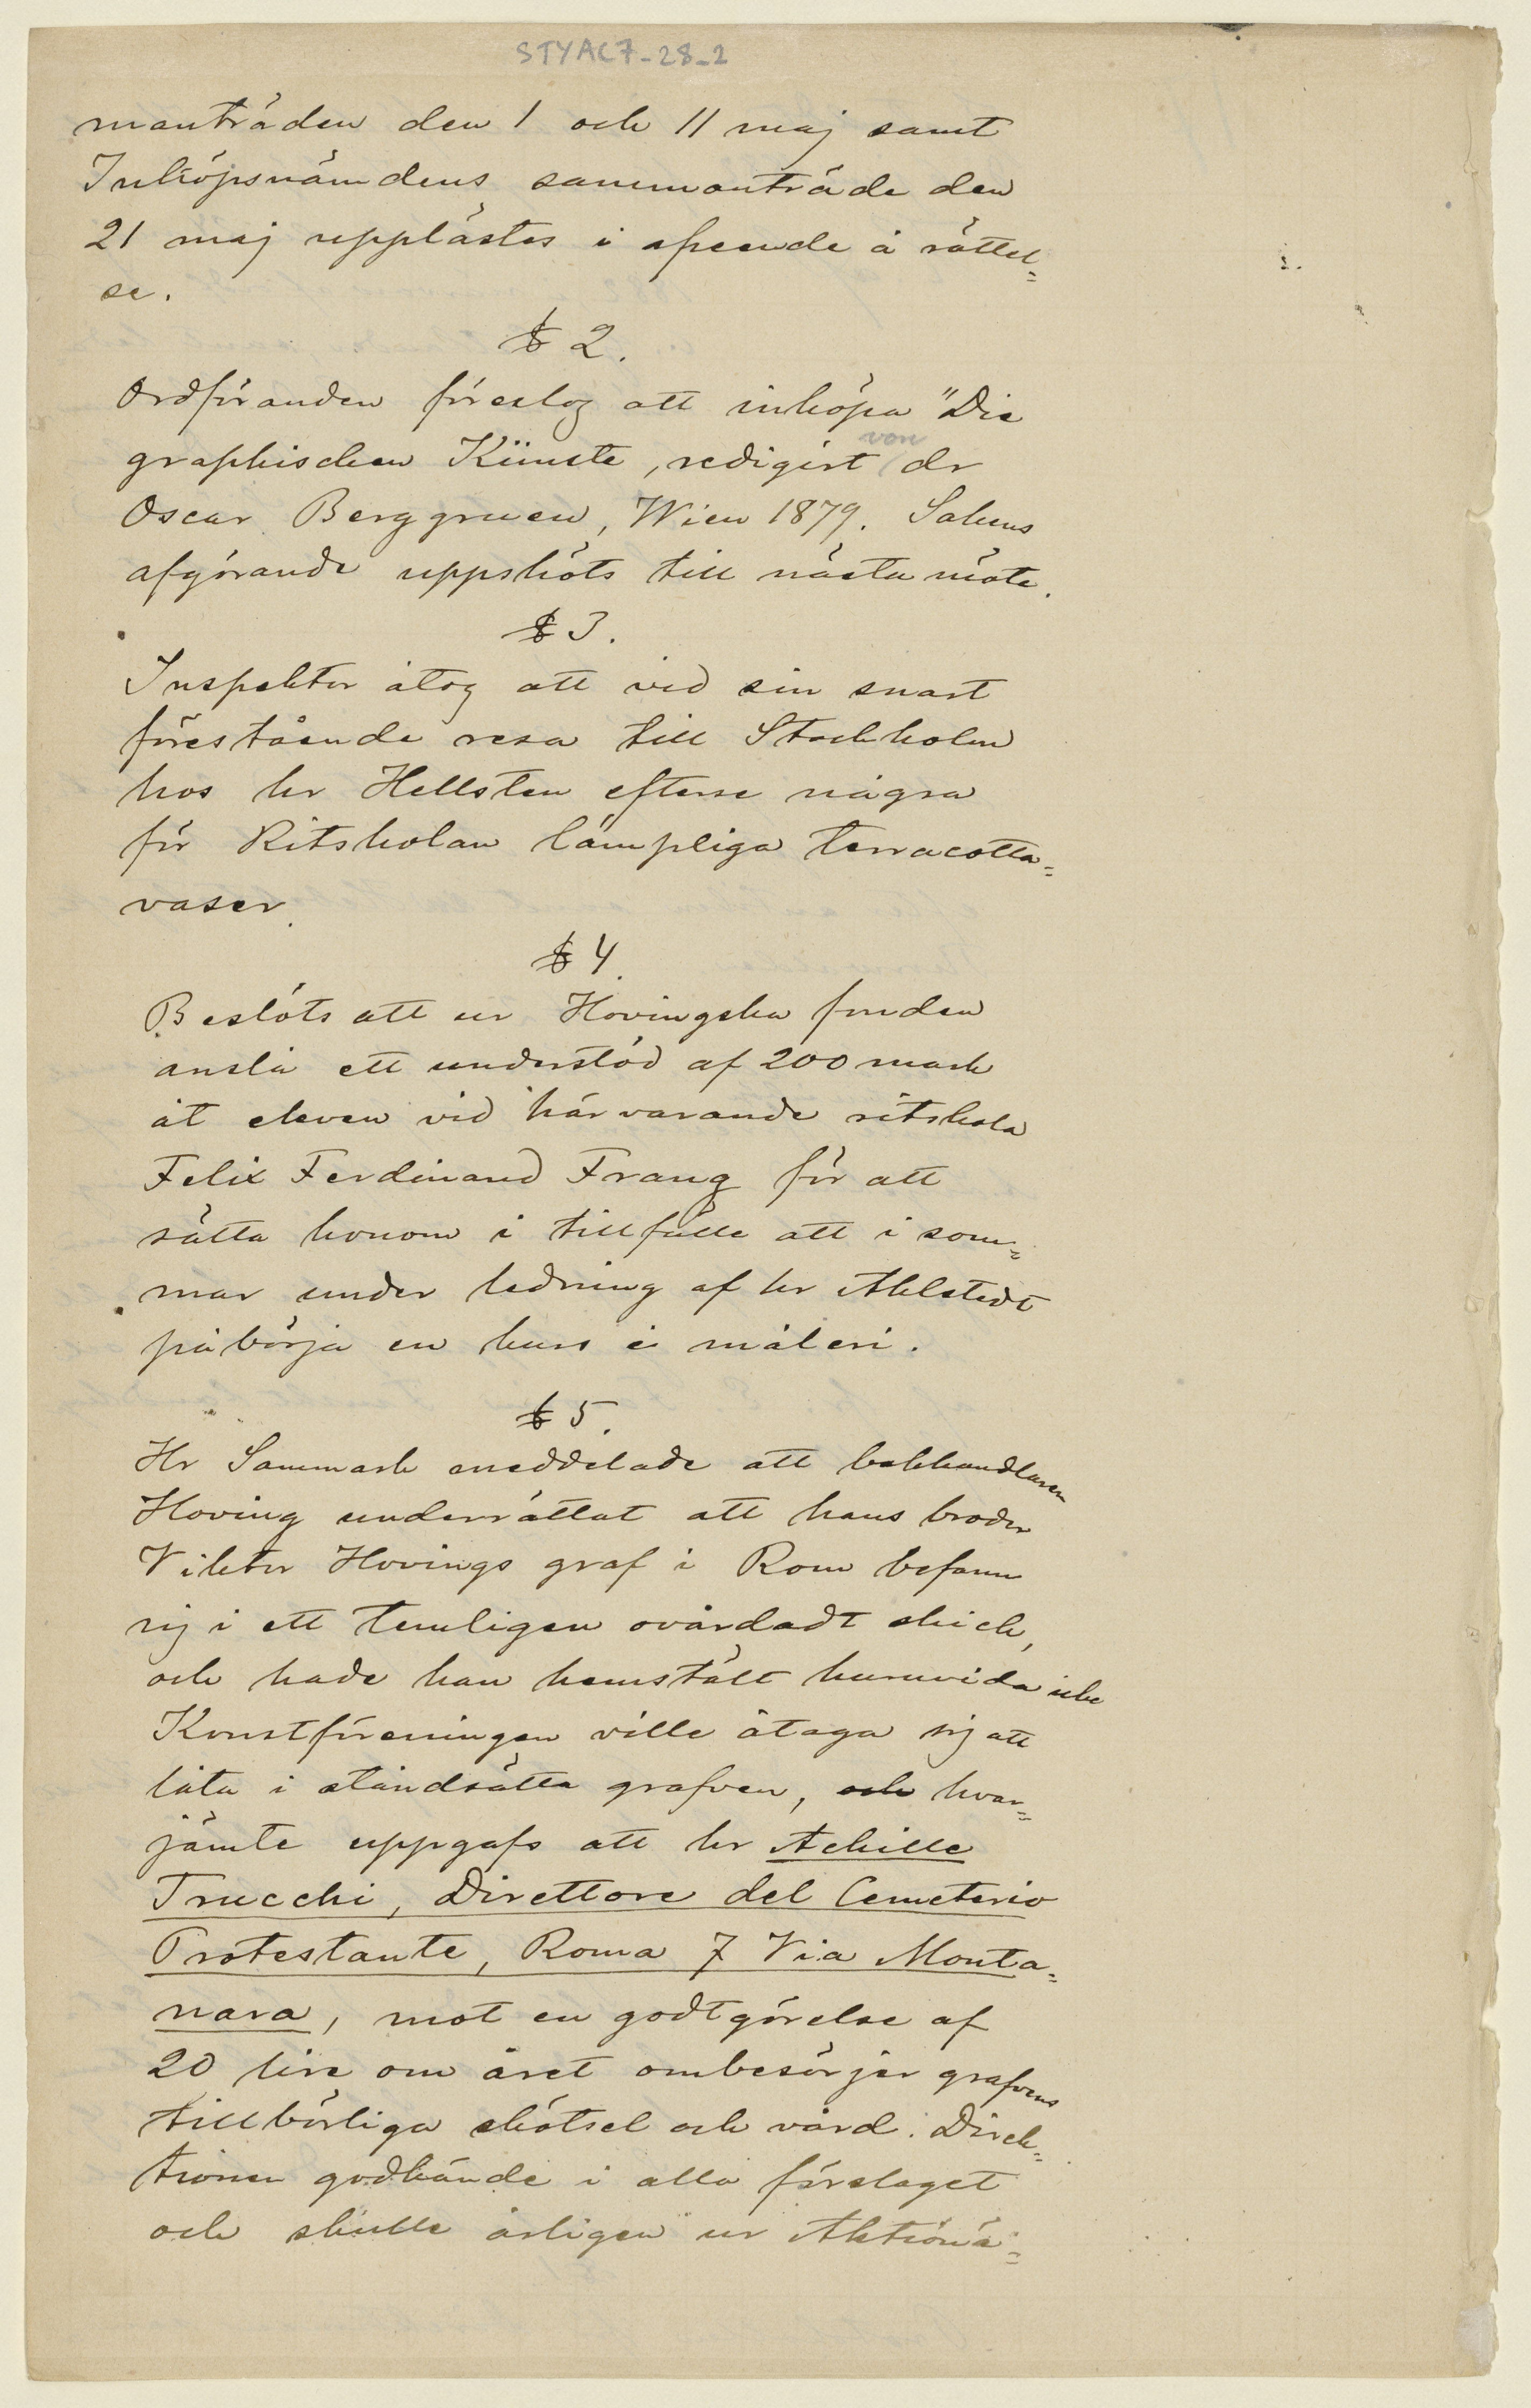 STYAC7-28-2
manträden den 1 och 11 maj samt
Inköpsnämdens sammanträde den
21 maj upplästes i afseende å rättel=
se.
§ 2.
Ordföranden föreslog att inköpa "Die
graphischen Künste, redigirt von dr
Oscar Berggruen, Wien 1879. Sakens
afgörande uppsköts till nästa möte.
§ 3.
Inspektor åtog att vid sin snart
förestående resa till Stockholm
hos hr Hellsten efterse några
för Ritskolan lämpliga terracotta=
vaser.
§ 4.
Beslöts att ur Hovingska fonden
anslå ett understöd af 200 mark
åt eleven vid härvarande ritskola
Felix Ferdinand Frang för att
sätta honom i tillfälle att i som=
mar under ledning af hr Ahlstedt
påbörja en kurs i måleri.
§ 5.
Hr Sammark meddelade att bokhandlaren
Hoving underrättat att hans broder
Viktor Hovings graf i Rom befann
sig i ett temligen ovårdadt skick,
och hade han hemstält huruvida icke
Konstföreningen ville åtaga sig att
låta i ståndsätta grafven, och hvar=
jämte uppgafs att hr Achille
Trucchi, Direttore del Cemeterio
Protestante, Roma 7 Via Monta=
nara, mot en godtgörelse af
20 lire om året ombesörjer grafvens
tillbörliga skötsel och vård. Direk=
tionen godkände i allo förslaget
och skulle årligen ur Aktionä=